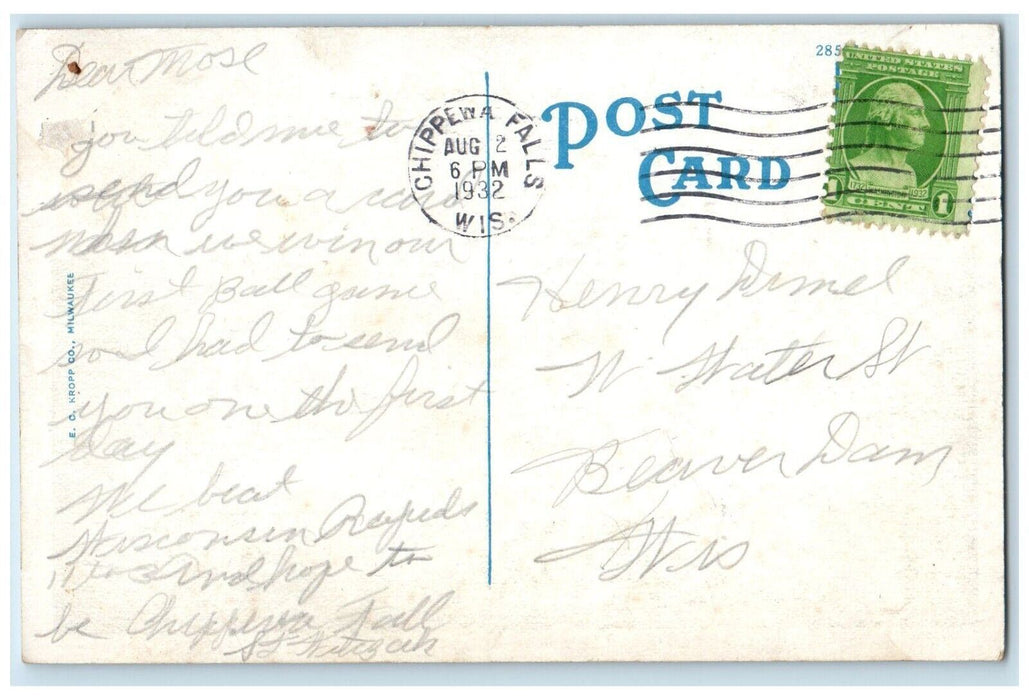 Dear Mose
you told me to
send you a card
when we win our
First Ball game
so I had to send
you one the first
day
We beat
Wisconsin Rapids
11 to 3 And hope to
be Chippewa Fall
E. C. KROPP CO., MILWAUKEE
285
POST
CARD
CHIPPEWA FALLS
AUG 2
6 PM
1932
WIS.
UNITED STATES
POSTAGE
1932
1 CENT 1
Henry
W Water St
Beaver Dam
Wis